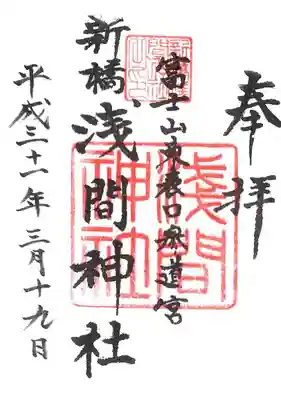 奉拝
富士山東表口道宮
新橋浅間神社
浅間
神社
平成三十一年三月十九日